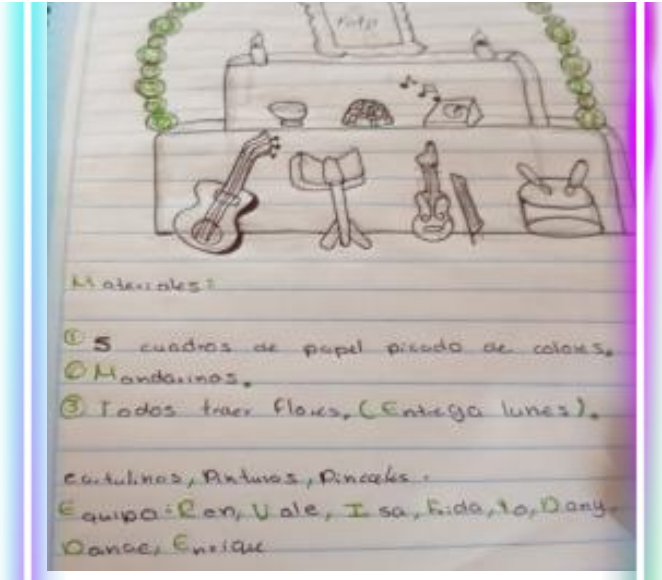 Foto
Materiales:
① 5 cuadros de papel picado de colores.
② Mandarinas.
③ Todos traer flores. (Entrega lunes).
cartulinas, Pinturas, Pinceles.
Equipo: Ren, Vale, Isa, Frida, Yo, Dany,
Danae, Enrique